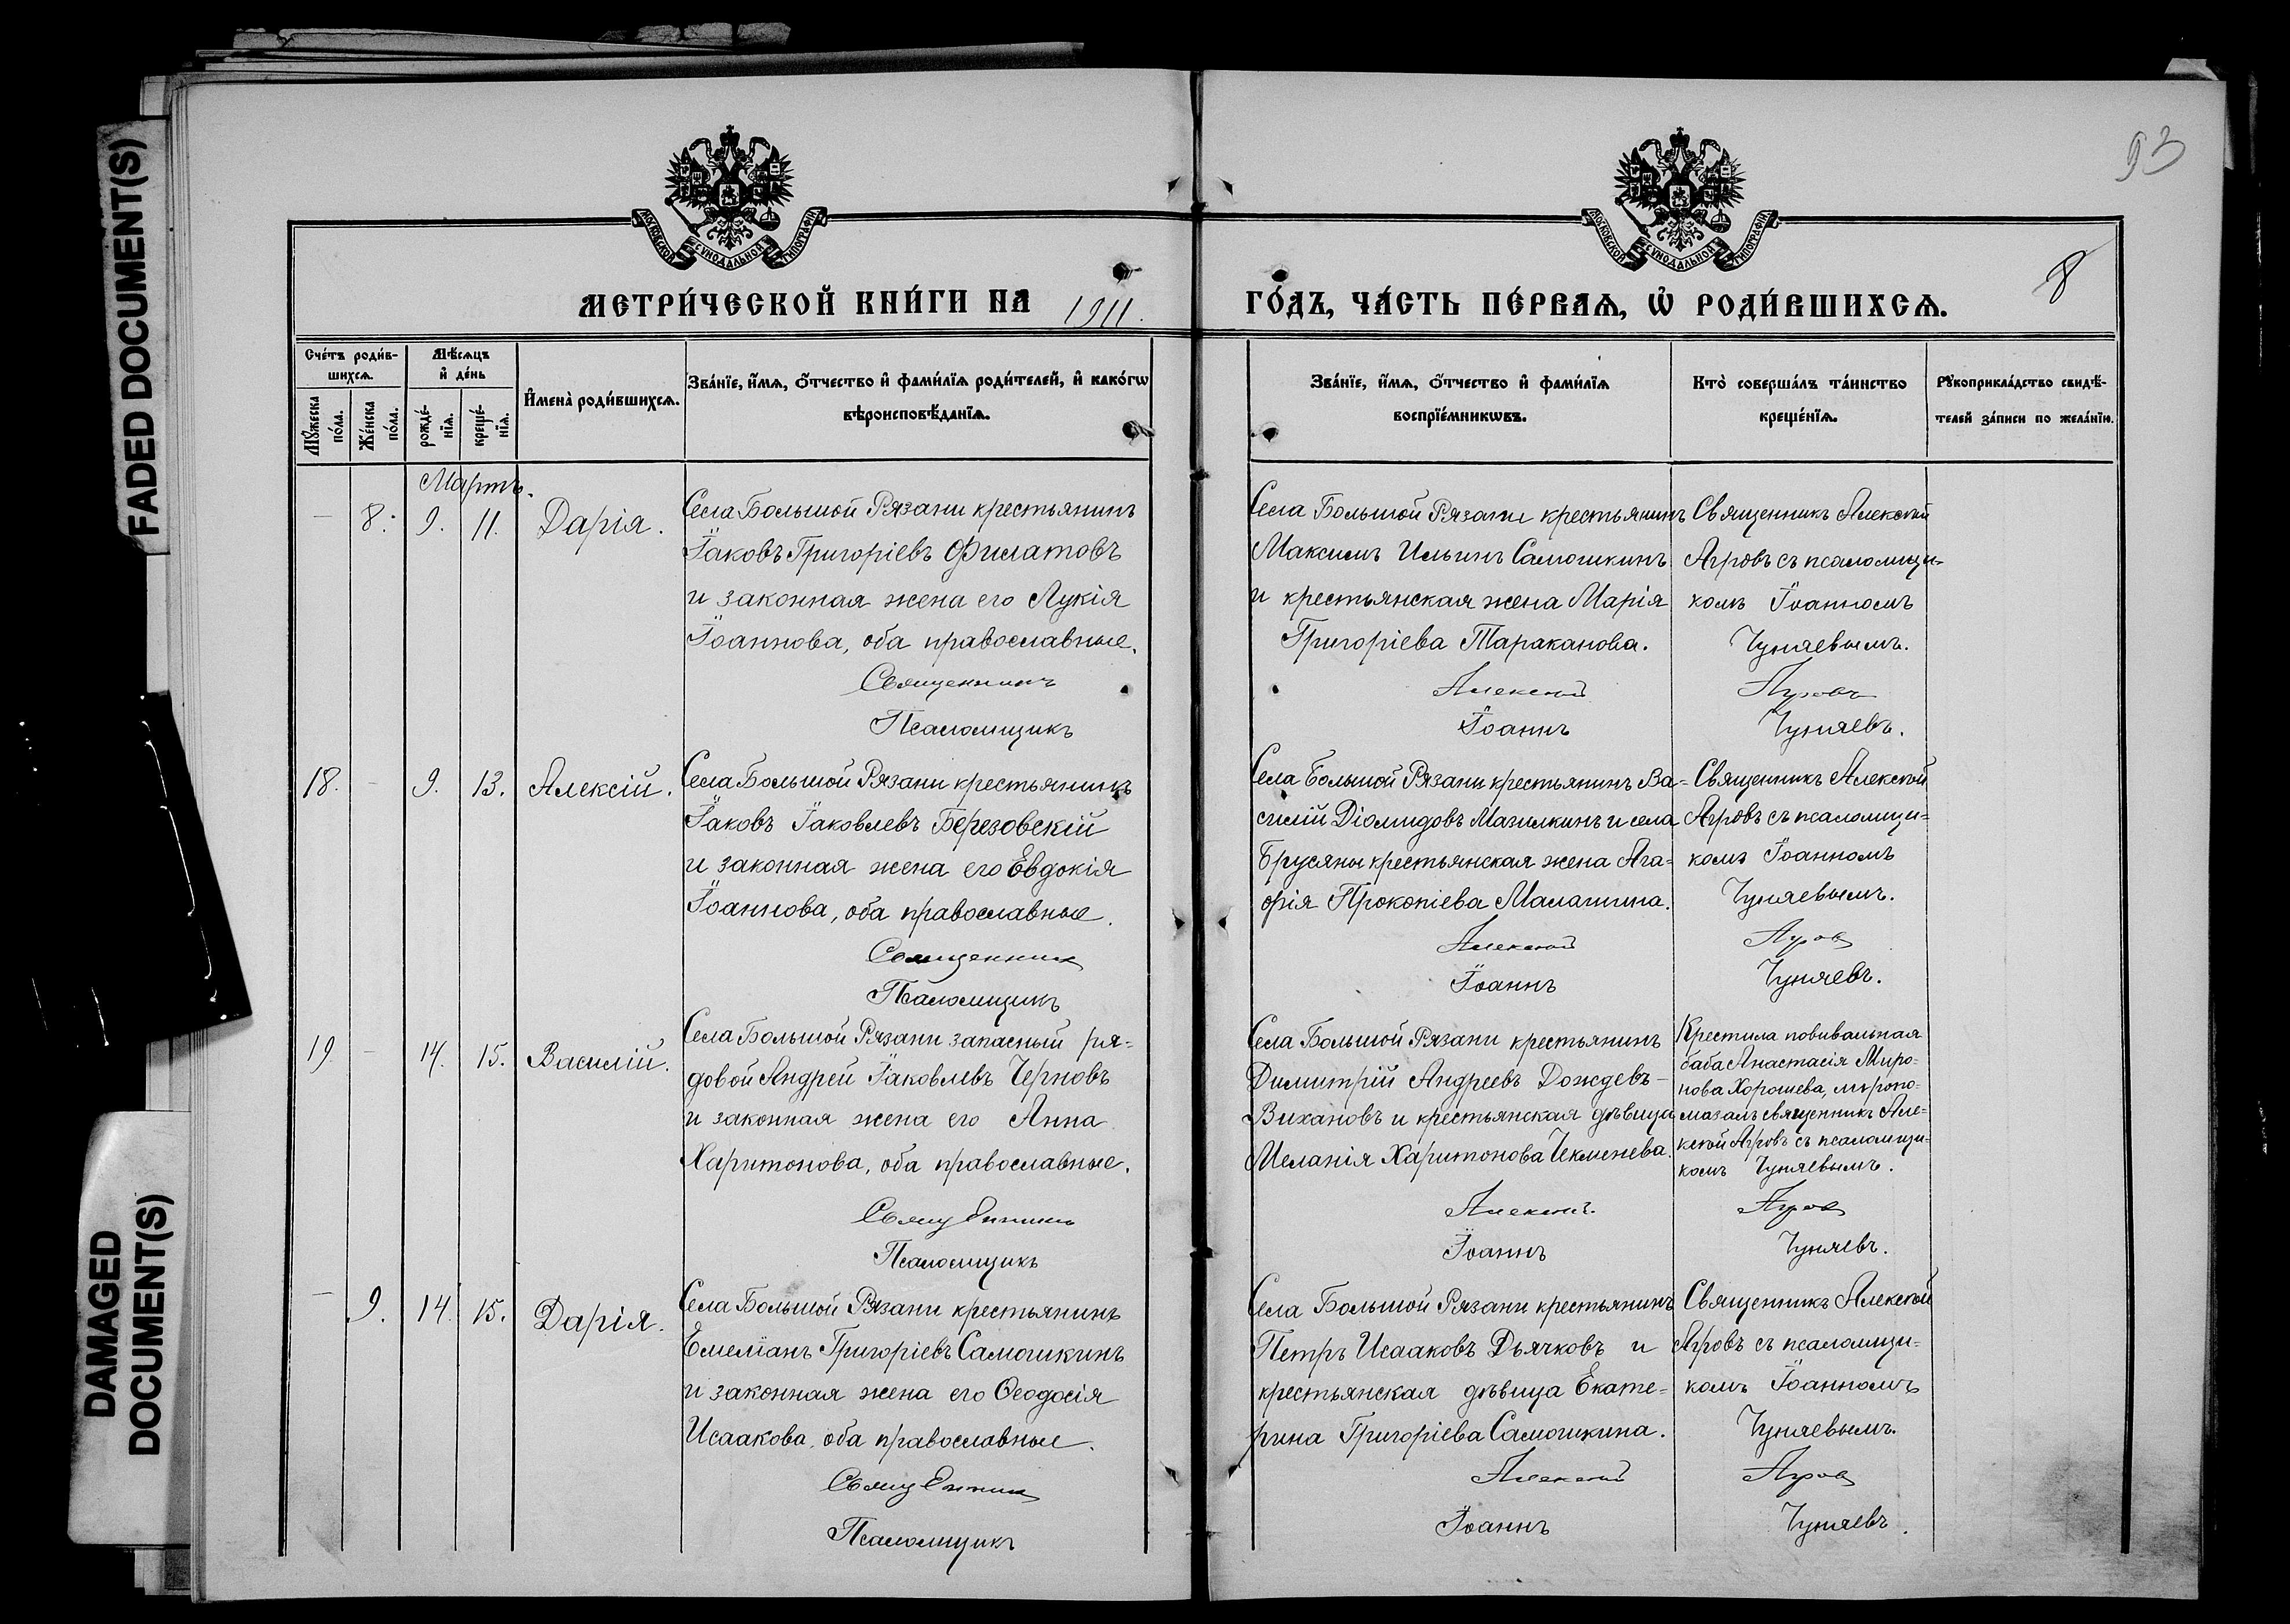 FADED DOCUMENT(S)
DAMAGED
DOCUMENT(S)
93
МОСКОВСКОЙ СѴНОДАЛЬНОЙ ТИПОГРАФІИ
МОСКОВСКОЙ СѴНОДАЛЬНОЙ ТИПОГРАФІИ
8
МЕТРИ́ЧЕСКОЙ КНИ́ГИ НА 1911.
ГО́ДЪ, ЧА́СТЬ ПЕ́РВАѦ, Ѡ҆ РОДИ́ВШИХСѦ.
Сче́тъ роди́в-
шихсѧ.
Мѹ́жеска
по́ла.
Же́нска
по́ла.
Мѣ́сѧцъ
и҆ де́нь
рожде́-
нїѧ.
креще́-
нїѧ.
И҆мена̀ роди́вшихсѧ.
Зва́нїе, и҆́мѧ, ѻ҆́тчество и҆ фами́лїѧ роди́телей, и҆ како́гѡ
вѣроисповѣ́данїѧ.
Зва́нїе, и҆́мѧ, ѻ҆́тчество и҆ фами́лїѧ
воспрїе́мникѡвъ.
Кто̀ соверша́лъ та́инство
креще́нїѧ.
Рꙋкоприкла́дство свидѣ́-
телей за́писи по жела́нїю.
Мартъ.
— 8. 9. 11. Дарія.
Села Большой Рязани крестьянинъ
Іаковъ Григоріевъ Филатовъ
и законная жена его Лукія
Іоаннова, оба православные.
Священникъ
Псаломщикъ
Села Большой Рязани крестьянинъ
Максимъ Ильинъ Самошкинъ
и крестьянская жена Марія
Григоріева Тараканова.
Алексій
Іоаннъ
Священникъ Алексій
Агровъ съ псаломщи-
комъ Іоанномъ
Чуняевымъ.
Агровъ
Чуняевъ.
18. — 9. 13. Алексій.
Села Большой Рязани крестьянинъ
Іаковъ Іаковлевъ Березовскій
и законная жена его Евдокія
Іоаннова, оба православные.
Священникъ
Псаломщикъ
Села Большой Рязани крестьянинъ Ва-
силій Діомидовъ Мазилкинъ и села
Брусяны крестьянская жена Ага-
фія Прокопіева Малашина.
Алексій
Іоаннъ
Священникъ Алексій
Агровъ съ псаломщи-
комъ Іоанномъ
Чуняевымъ.
Агровъ
Чуняевъ.
19 — 14. 15. Василій.
Села Большой Рязани запасный ря-
довой Андрей Іаковлевъ Черновъ
и законная жена его Анна
Харитонова, оба православные.
Священникъ
Псаломщикъ
Села Большой Рязани крестьянинъ
Димитрій Андреевъ Дождевъ-
Вихановъ и крестьянская дѣвица
Меланія Харитонова Чекменева.
Алексій
Іоаннъ
Крестила повивальная
баба Анастасія Миро-
нова Хорошева, мѵропо-
мазалъ священникъ Але-
ксій Агровъ съ псаломщи-
комъ Чуняевымъ.
Агровъ
Чуняевъ.
— 9. 14. 15. Дарія.
Села Большой Рязани крестьянинъ
Емеліанъ Григоріевъ Самошкинъ
и законная жена его Ѳеодосія
Исаакова, оба православные.
Священникъ
Псаломщикъ
Села Большой Рязани крестьянинъ
Петръ Исааковъ Дьячковъ и
крестьянская дѣвица Екате-
рина Григоріева Самошкина.
Алексій
Іоаннъ
Священникъ Алексій
Агровъ съ псаломщи-
комъ Іоанномъ
Чуняевымъ.
Агровъ
Чуняевъ.